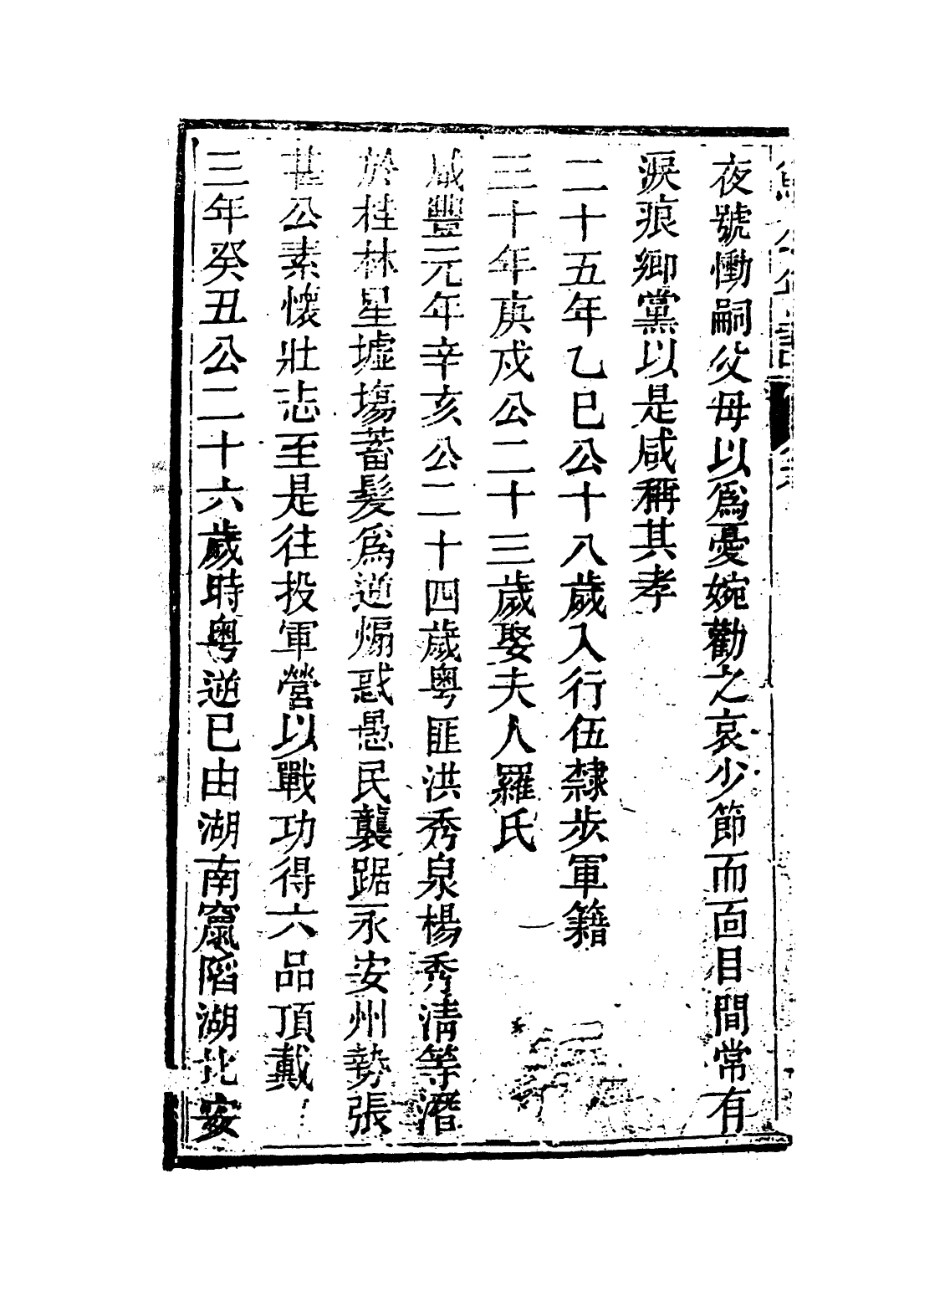 夜號慟嗣父母以爲憂婉勸之哀少節而面目間常有
淚痕鄉黨以是咸稱其孝
二十五年乙巳公十八歲入行伍隸步軍籍
三十年庚戌公二十三歲娶夫人羅氏
咸豐元年辛亥公二十四歲粵匪洪秀泉楊秀清等潛
於桂林星墟塲蓄髮爲逆煽惑愚民襲踞永安州勢張
甚公素懷壯志至是往投軍營以戰功得六品頂戴
三年癸丑公二十六歲時粵逆已由湖南竄陷湖北安